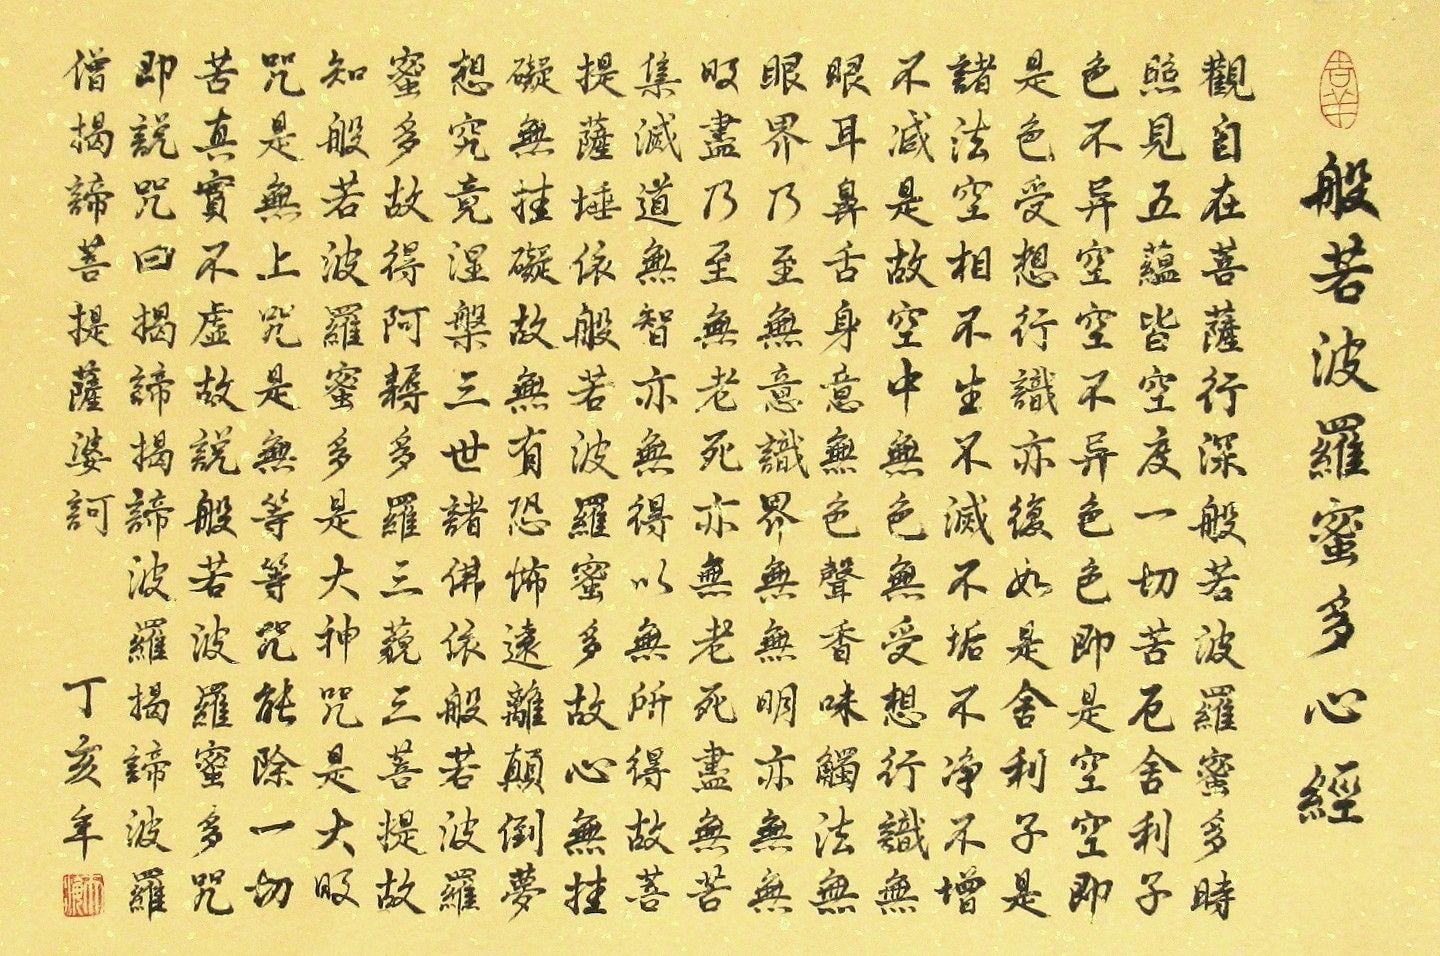 吉羊
般若波羅蜜多心經
觀自在菩薩行深般若波羅蜜多時
照見五蘊皆空度一切苦厄舍利子
色不异空空不异色色即是空空即
是色受想行識亦復如是舍利子是
諸法空相不生不滅不垢不净不增
不减是故空中無色無受想行識無
眼耳鼻舌身意無色聲香味觸法無
眼界乃至無意識界無無明亦無無
明盡乃至無老死亦無老死盡無苦
集滅道無智亦無得以無所得故菩
提薩埵依般若波羅蜜多故心無挂
礙無挂礙故無有恐怖遠離顛倒夢
想究竟涅槃三世諸佛依般若波羅
蜜多故得阿耨多羅三藐三菩提故
知般若波羅蜜多是大神咒是大明
咒是無上咒是無等等咒能除一切
苦真實不虛故說般若波羅蜜多咒
即說咒曰揭諦揭諦波羅揭諦波羅
僧揭諦菩提薩婆訶
丁亥年